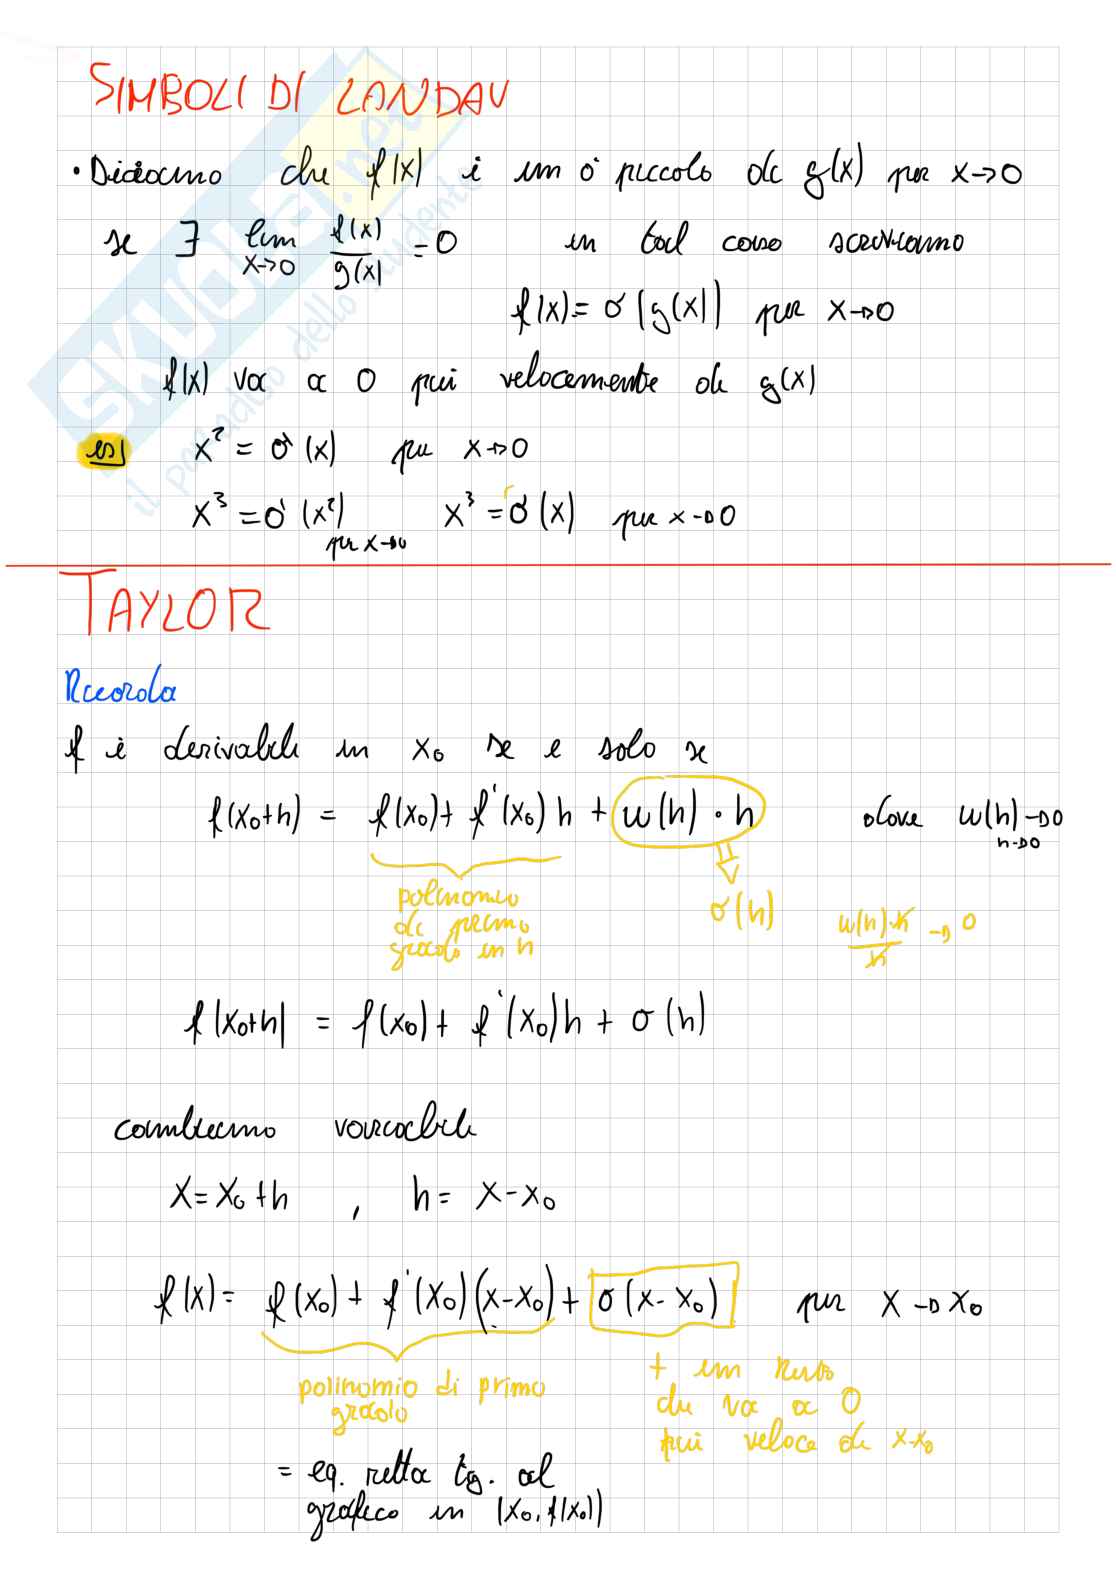 SIMBOLI DI LANDAU
• Diciamo che f(x) è un o piccolo di g(x) per x→0
se ∃ lim x→0 f(x)/g(x) = 0 in tal caso scriviamo
f(x) = o(g(x)) per x→0
f(x) va a 0 più velocemente di g(x)
es) x² = o(x) per x→0
x³ = o(x²) per x→0 x³ = o(x) per x→0
TAYLOR
Ricorda
f è derivabile in x₀ se e solo se
f(x₀+h) = f(x₀) + f'(x₀)h + w(h)·h dove w(h)→0 h→0
polinomio di primo grado in h
o(h)
w(h)·h/h → 0
f(x₀+h) = f(x₀) + f'(x₀)h + o(h)
cambiamo variabile
x = x₀+h , h = x-x₀
f(x) = f(x₀) + f'(x₀)(x-x₀) + o(x-x₀) per x→x₀
polinomio di primo
grado
+ un resto
che va a 0
più veloce di x-x₀
= eq. retta tg. al
grafico in (x₀, f(x₀))
SKUOLA.net
il paradiso dello studente